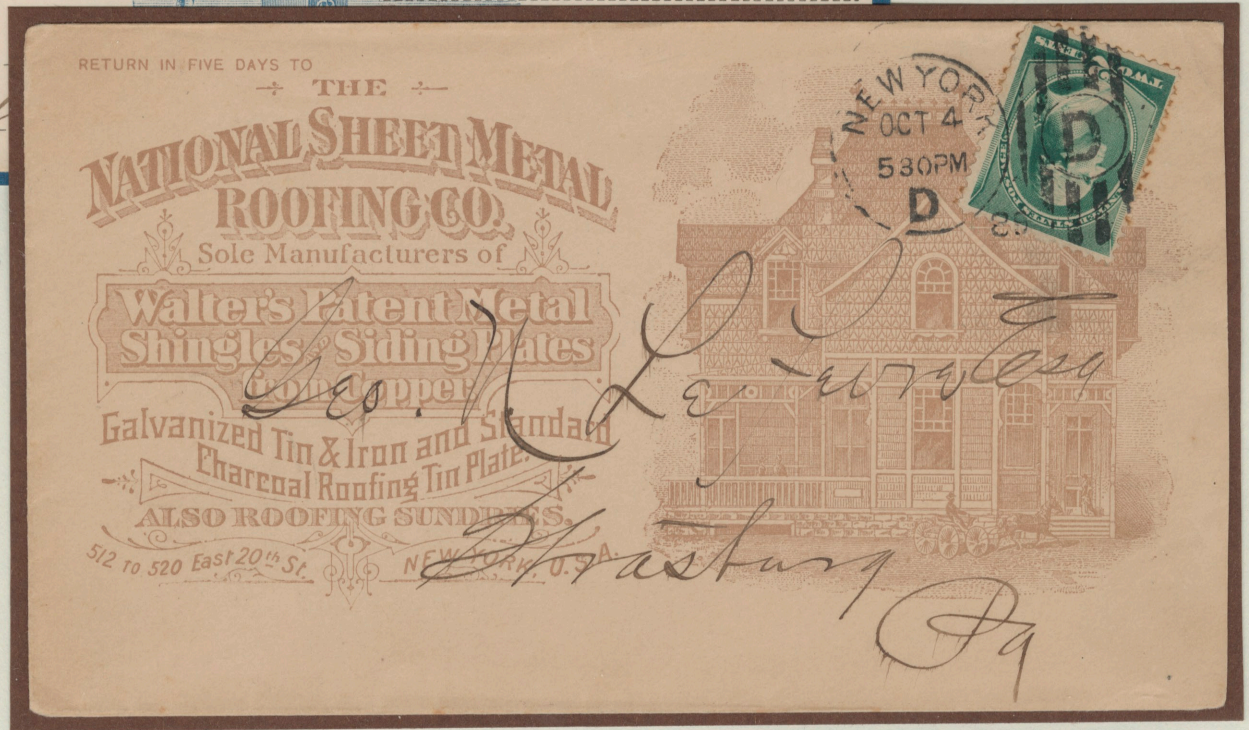 RETURN IN FIVE DAYS TO
THE
NATIONAL SHEET METAL
ROOFING CO.
Sole Manufacturers of
Walter's Patent Metal
Shingles and Siding Plates
Iron Copper
Galvanized Tin & Iron and Standard
Charcoal Roofing Tin Plate.
ALSO ROOFING SUNDRIES.
512 TO 520 East 20th St. NEW YORK, U.S.A.
NEW YORK
OCT 4
530PM
D
D
TWO CENTS
Geo. N. Le Fevre Esq
Strasburg
Pa